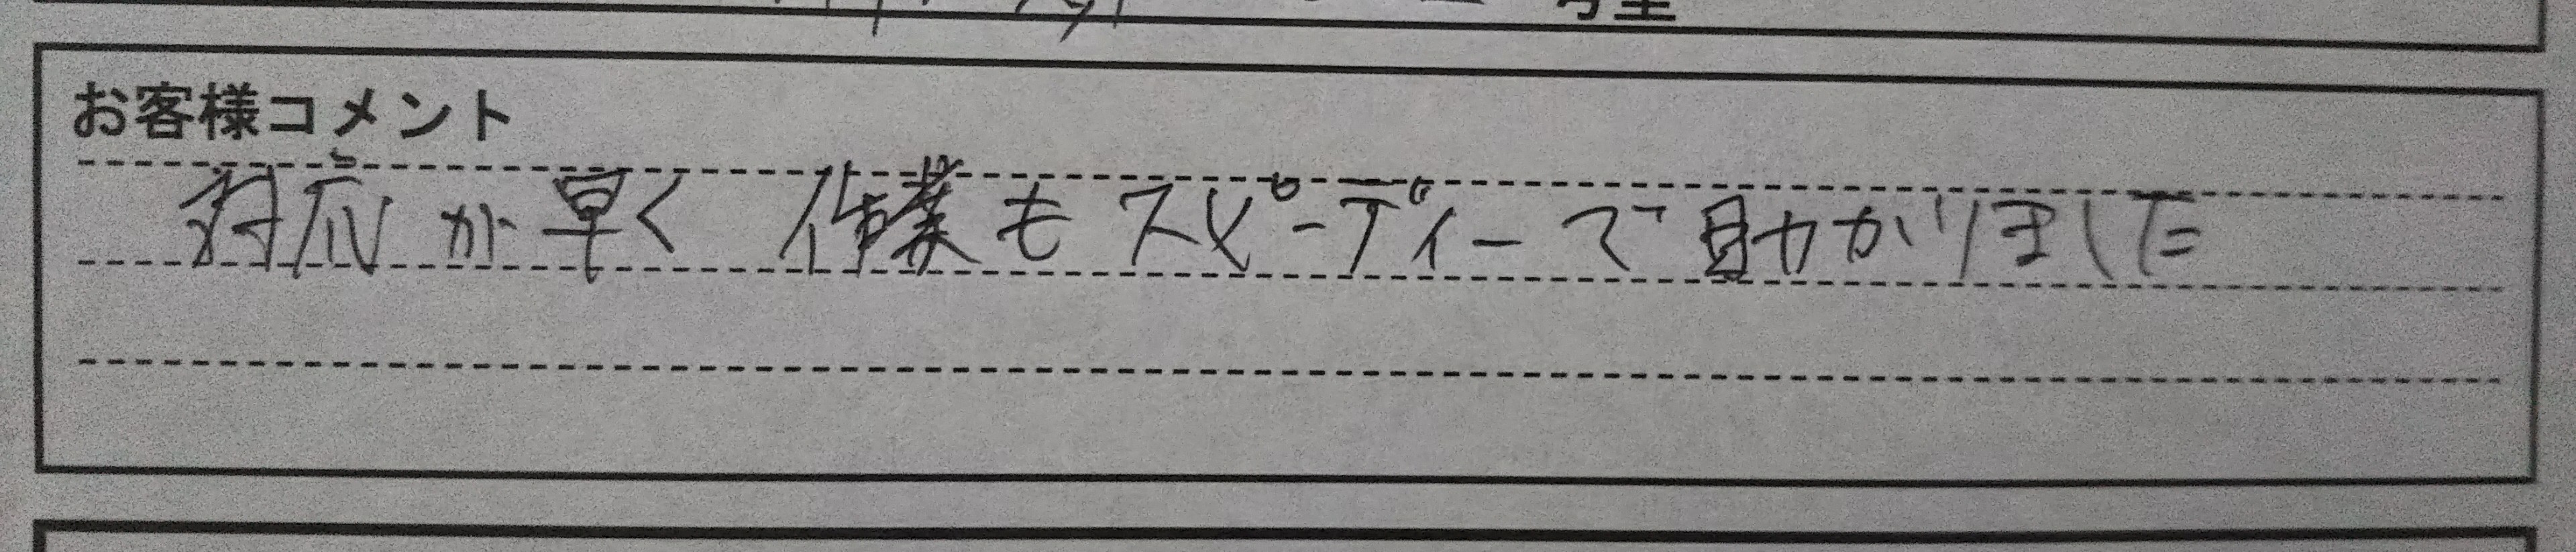 お客様コメント
対応が早く 作業もスピーディーで助かりました